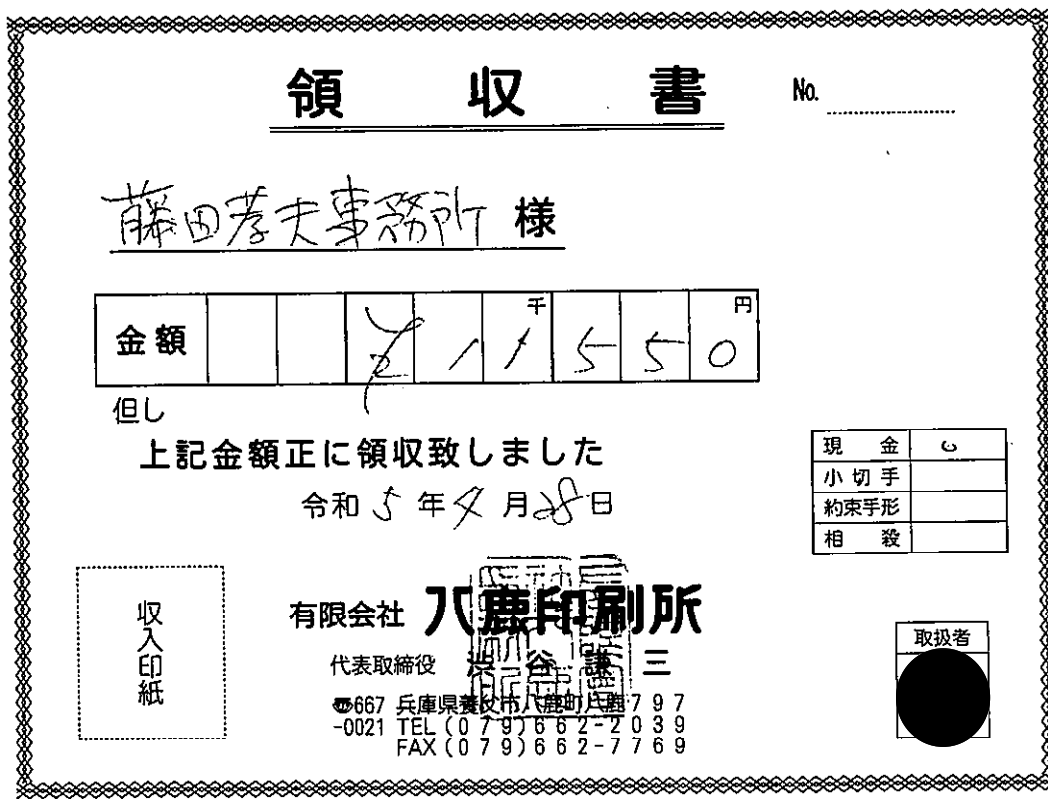 領収書
No.
藤田孝夫事務所 様
金額 ¥11千550円
但し
上記金額正に領収致しました
令和5年4月28日
現金
小切手
約束手形
相殺
収入印紙
有限会社 八鹿印刷所
代表取締役 渋谷謙三
〠667-0021 兵庫県養父市八鹿町八鹿797
TEL(079)662-2039
FAX(079)662-7769
取扱者